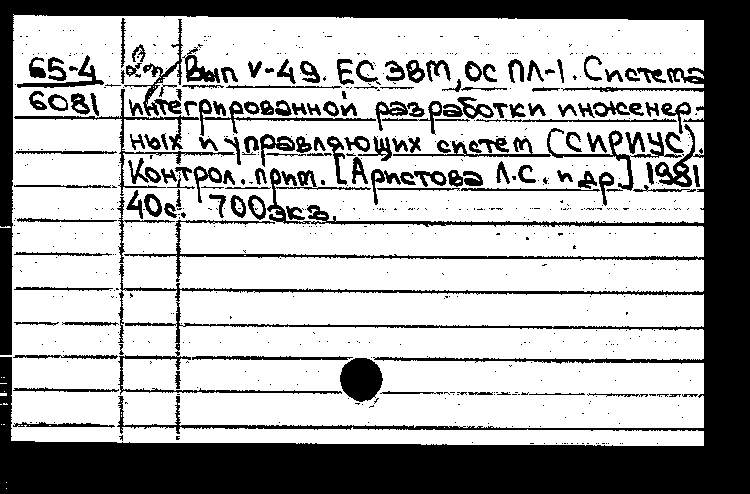 65-4 Вып V-49. ЕС ЭВМ, ОС ПЛ-1. Система
6081 интегрированной разработки инженер-
ных и управляющих систем (СИРИУС).
Контрол. прим. [Аристова Л.С. и др.] 1981
40с. 700экз.